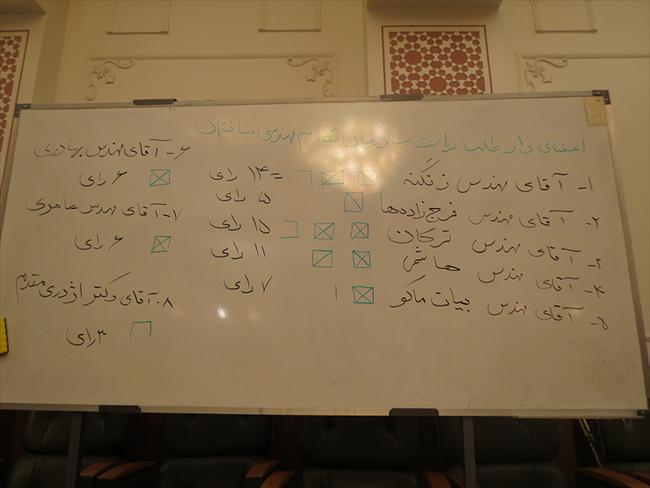 اعضای داوطلب ریاست سازمان نظام مهندسی ساختمان
۱- آقای مهندس زنگنه = ۱۴ رای
۲- آقای مهندس فرج‌زاده‌ها ۵ رای
۳- آقای مهندس ترکان ۱۵ رای
۴- آقای مهندس هاشمی ۱۱ رای
۵- آقای مهندس بیات ماکو ۷ رای
۶- آقای مهندس بهادری
۶ رای
۷- آقای مهندس عامری
۶ رای
۸- آقای دکتر اژدری مقدم
۳ رای